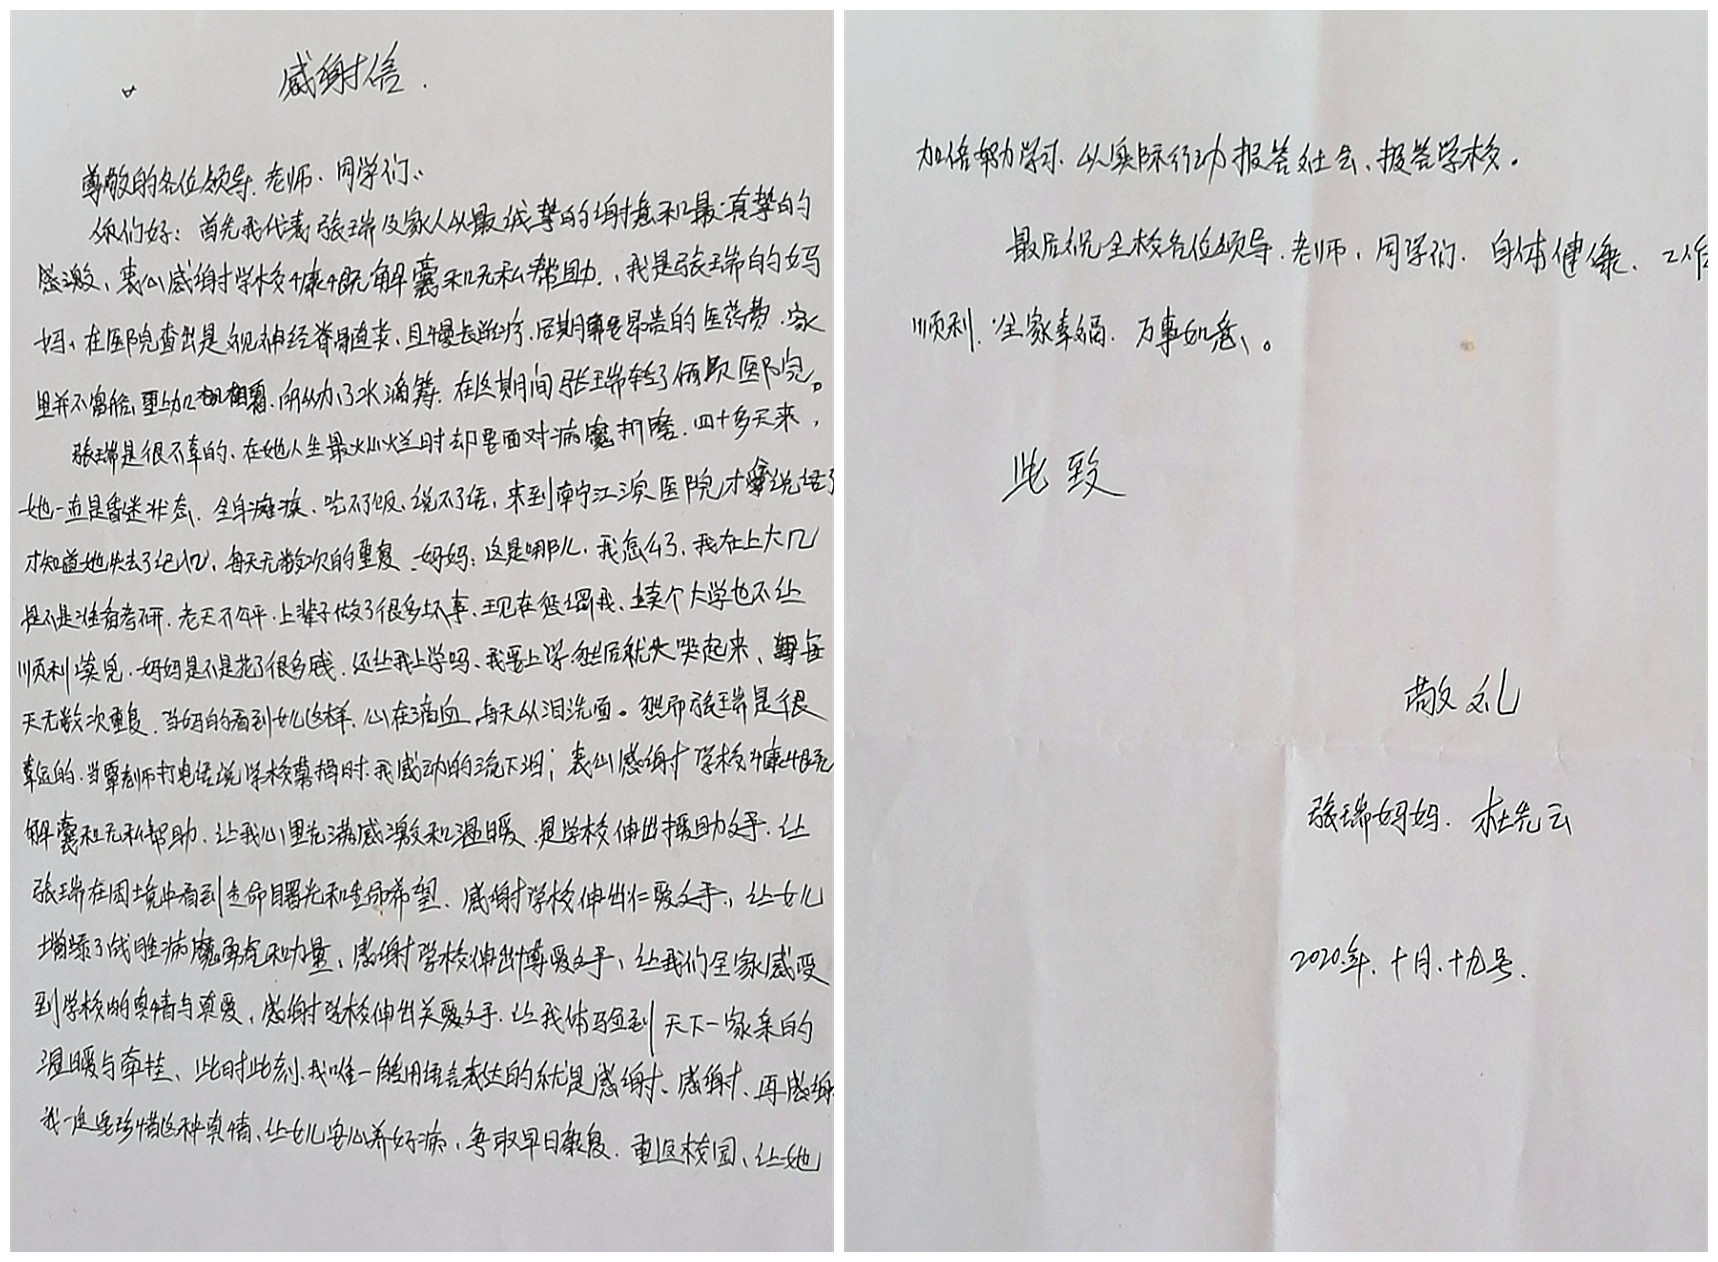 感谢信.
尊敬的各位领导、老师、同学们：
你们好：首先我代表张瑞及家人以最诚挚的谢意和最真挚的
感激，衷心感谢学校慷慨解囊和无私帮助，我是张瑞的妈
妈，在医院查出是视神经脊髓炎，且漫长治疗，后期昂贵的医药费，家
里并不富裕，更加，所以办了水滴筹，在这期间张瑞转了俩次医院。
张瑞是很不幸的，在她人生最灿烂时却要面对病魔折磨，四十多天来，
她一直是昏迷状态，全身瘫痪，吃不了饭，说不了话，来到南宁江滨医院才会说话了
才知道她失去了记忆，每天无数次的重复，妈妈：这是哪儿，我怎么了，我在上大几
是不是准备考研，老天不公平，上辈子做了很多坏事，现在惩罚我，读个大学也不让
顺利读完，妈妈是不是花了很多钱，还让我上学吗，我要上学，然后就大哭起来，每
天无数次重复，当妈的看到女儿这样，心在滴血，每天以泪洗面。然而张瑞是很
幸运的，当覃老师打电话说学校募捐时，我感动的流下泪；衷心感谢学校慷慨
解囊和无私帮助，让我心里充满感激和温暖，是学校伸出援助之手，让
张瑞在困境中看到生命曙光和生命希望，感谢学校伸出仁爱之手，让女儿
增添了战胜病魔勇气和力量，感谢学校伸出博爱之手，让我们全家感受
到学校的真情与真爱，感谢学校伸出关爱之手，让我体验到天下一家亲的
温暖与牵挂，此时此刻，我唯一能用语言表达的就是感谢、感谢、再感谢
我一定要珍惜这种真情，让女儿安心养好病，争取早日康复，重返校园，让她
加倍努力学习，以实际行动报答社会、报答学校。
最后祝全校各位领导、老师、同学们，身体健康、工作
顺利，全家幸福，万事如意。
此致
敬礼
张瑞妈妈、杜先云
2020年、十月、十九号.